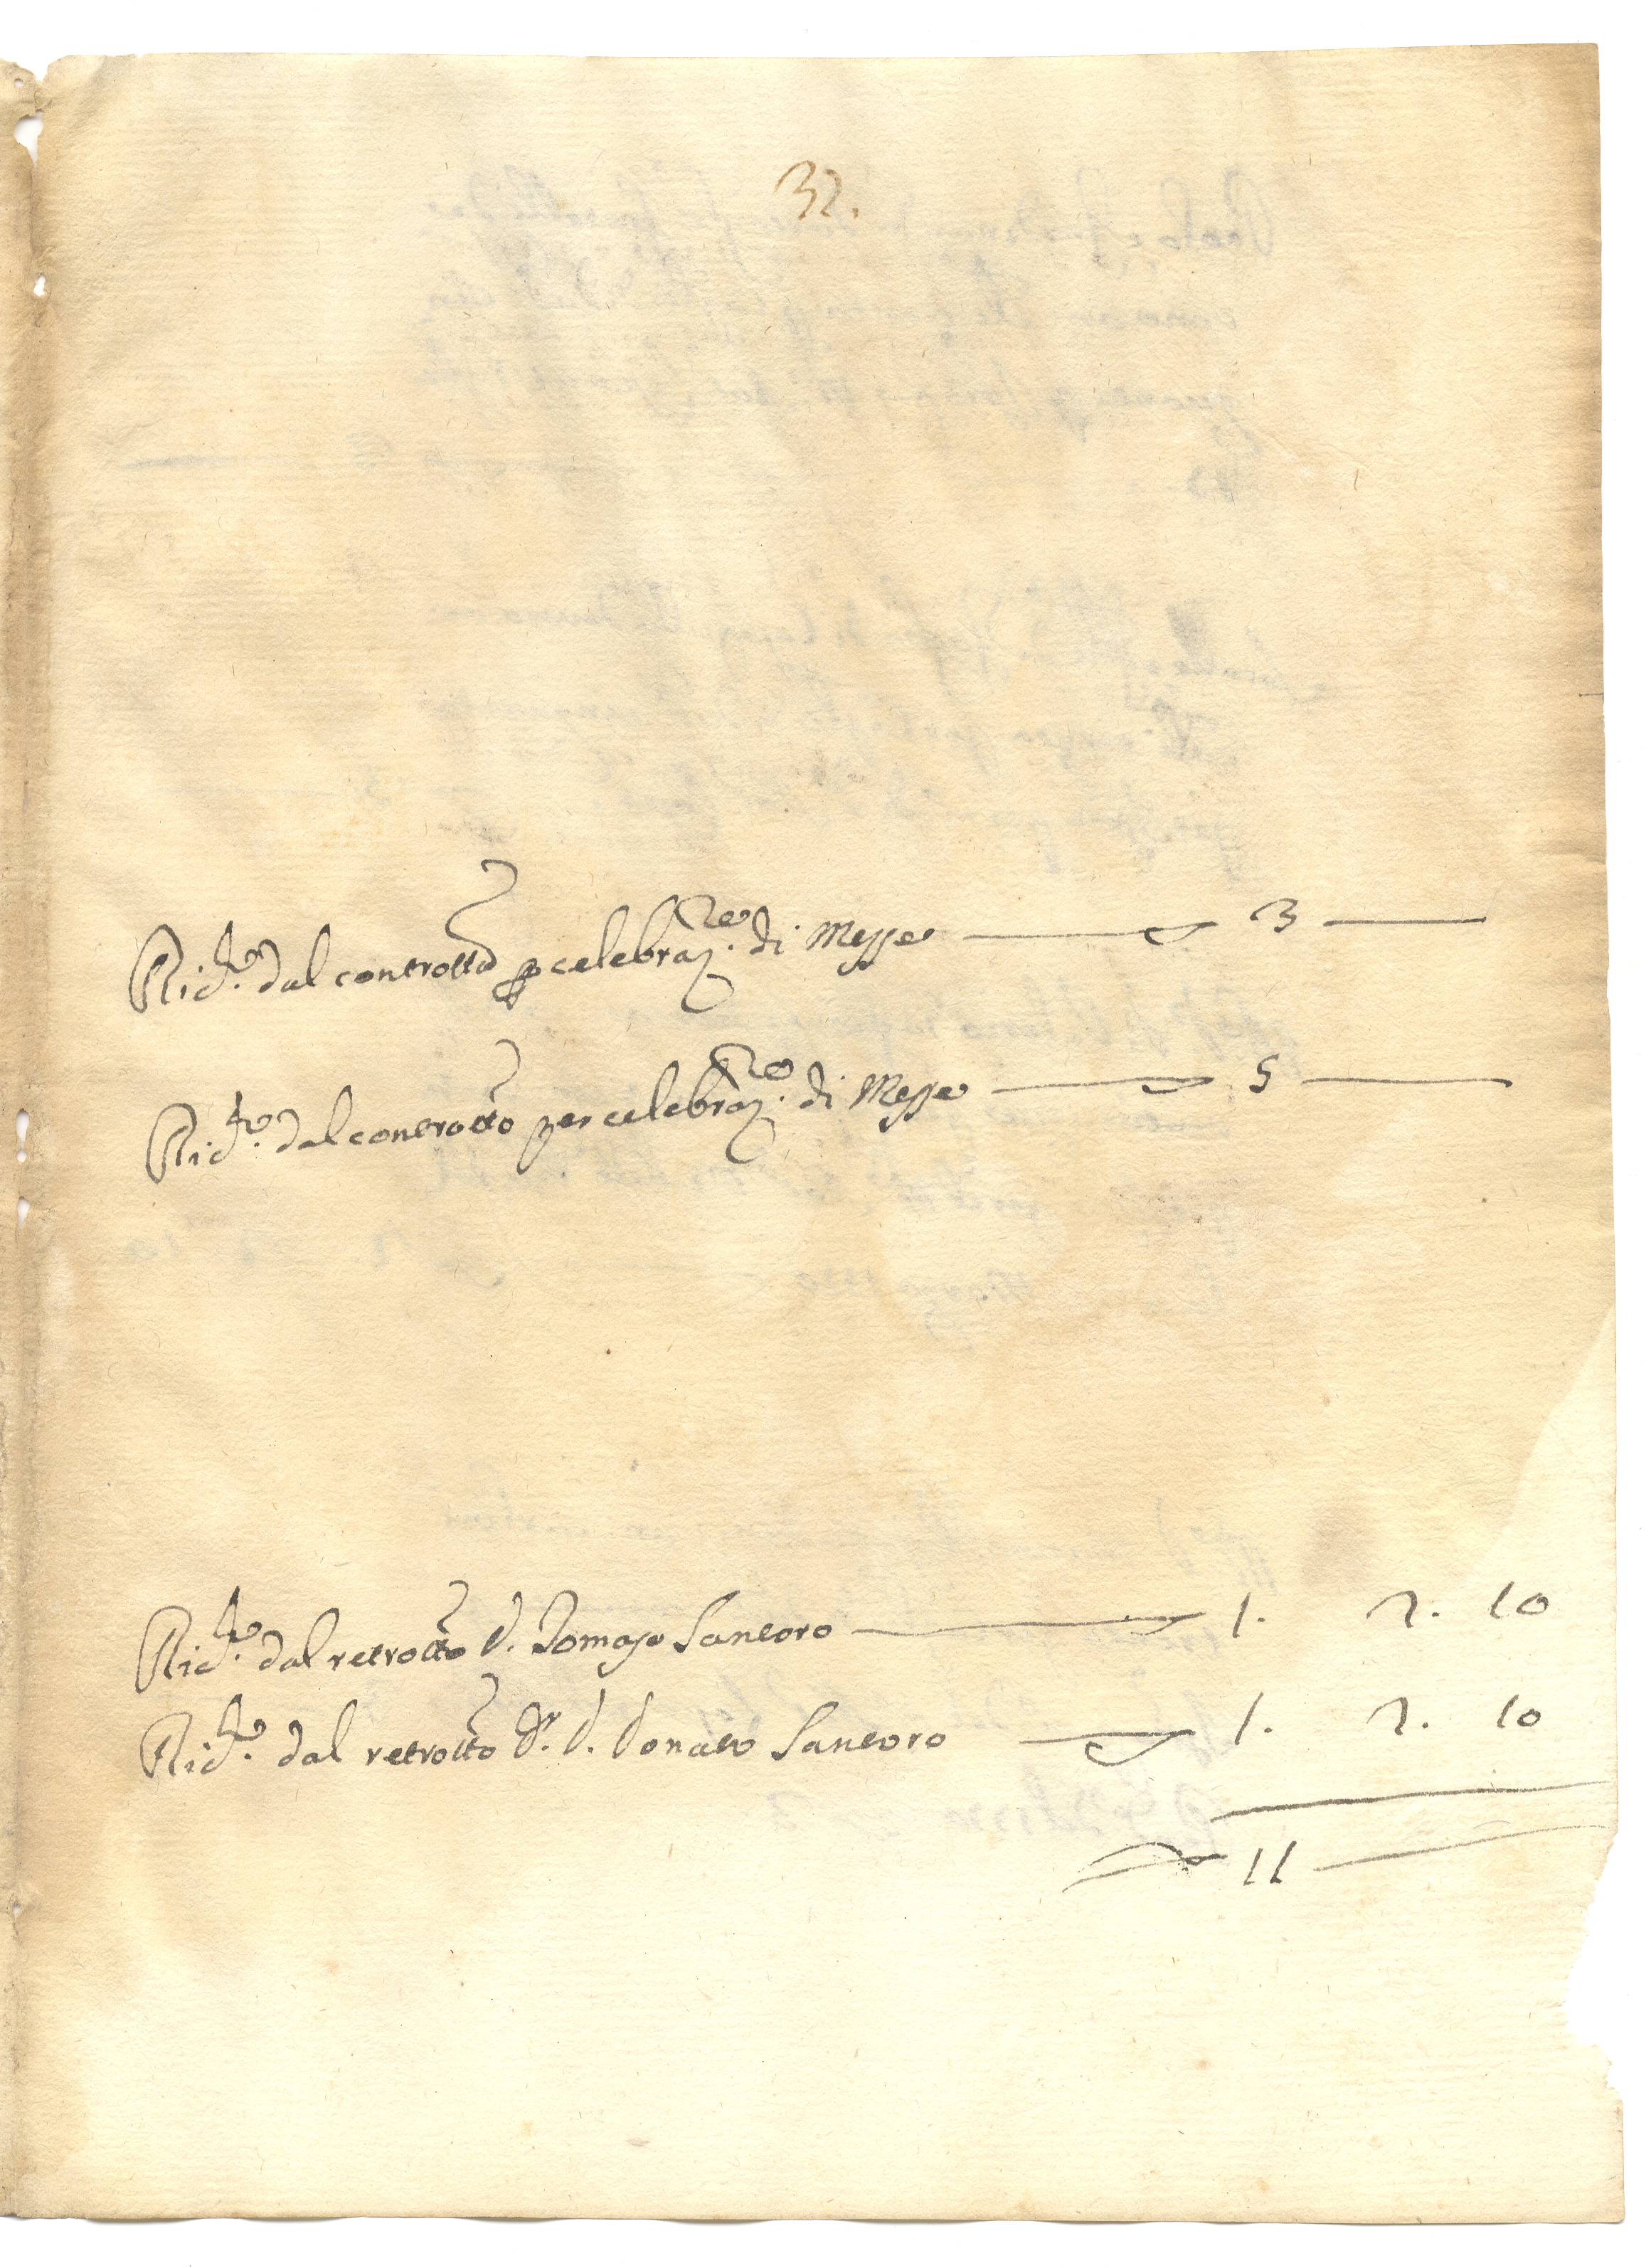 32.
Ric.to dal controtto p celebraz.ne di Messe — 3 —
Ric.to dal controtto per celebraz.ne di Messe — 5 —
Ric.to dal retrotto d. Tomaso Santoro — 1. 2. 10
Ric.to dal retrotto Dr. d. Donato Santoro — 1. 2. 10
11 —